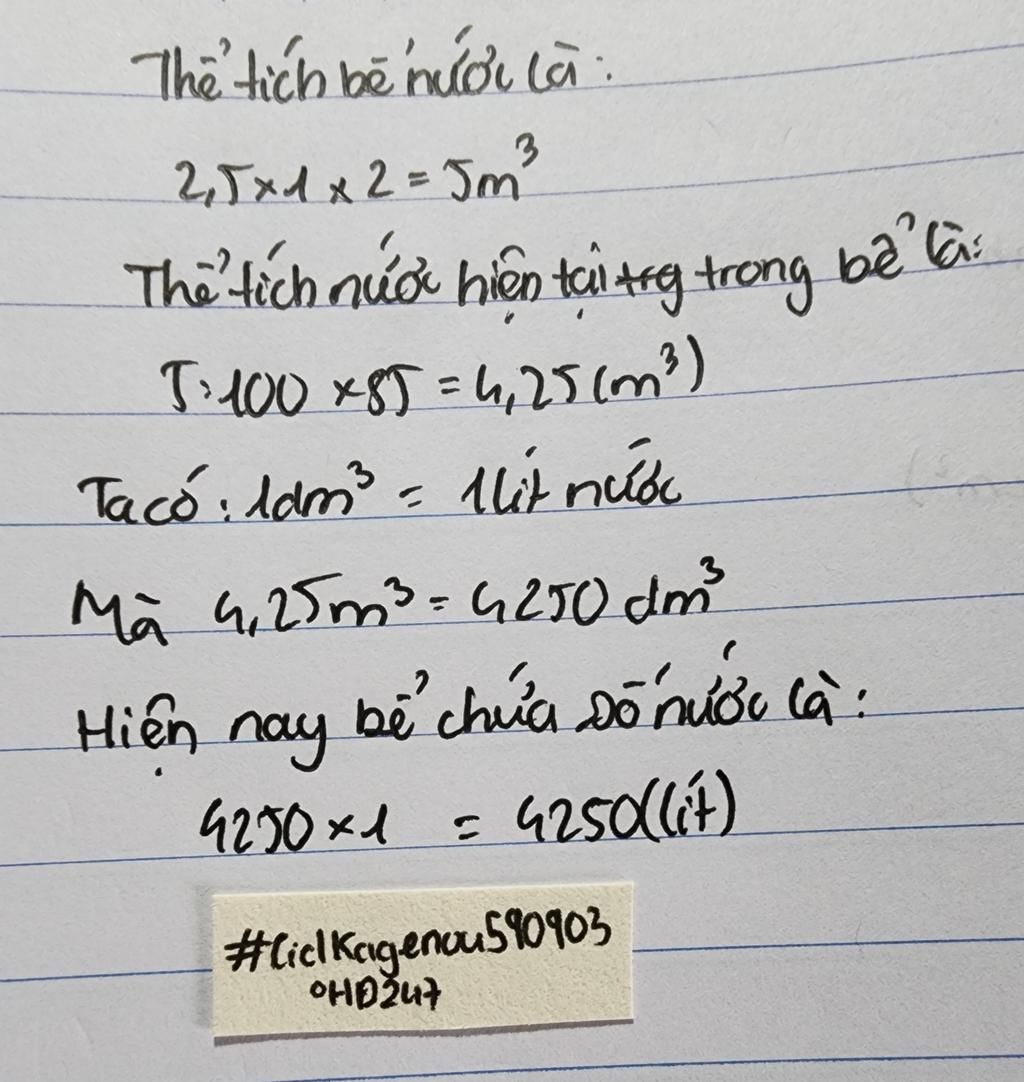 Thể tích bể nước là:
2,5 x 1 x 2 = 5m³
Thể tích nước hiện tại trg trong bể là:
5 : 100 x 85 = 4,25 (m³)
Ta có : 1dm³ = 1 lít nước
Mà 4,25m³ = 4250 dm³
Hiện nay bể chứa số nước là :
4250 x 1 = 4250 (lít)
#CidKagenou590903
°HĐ247